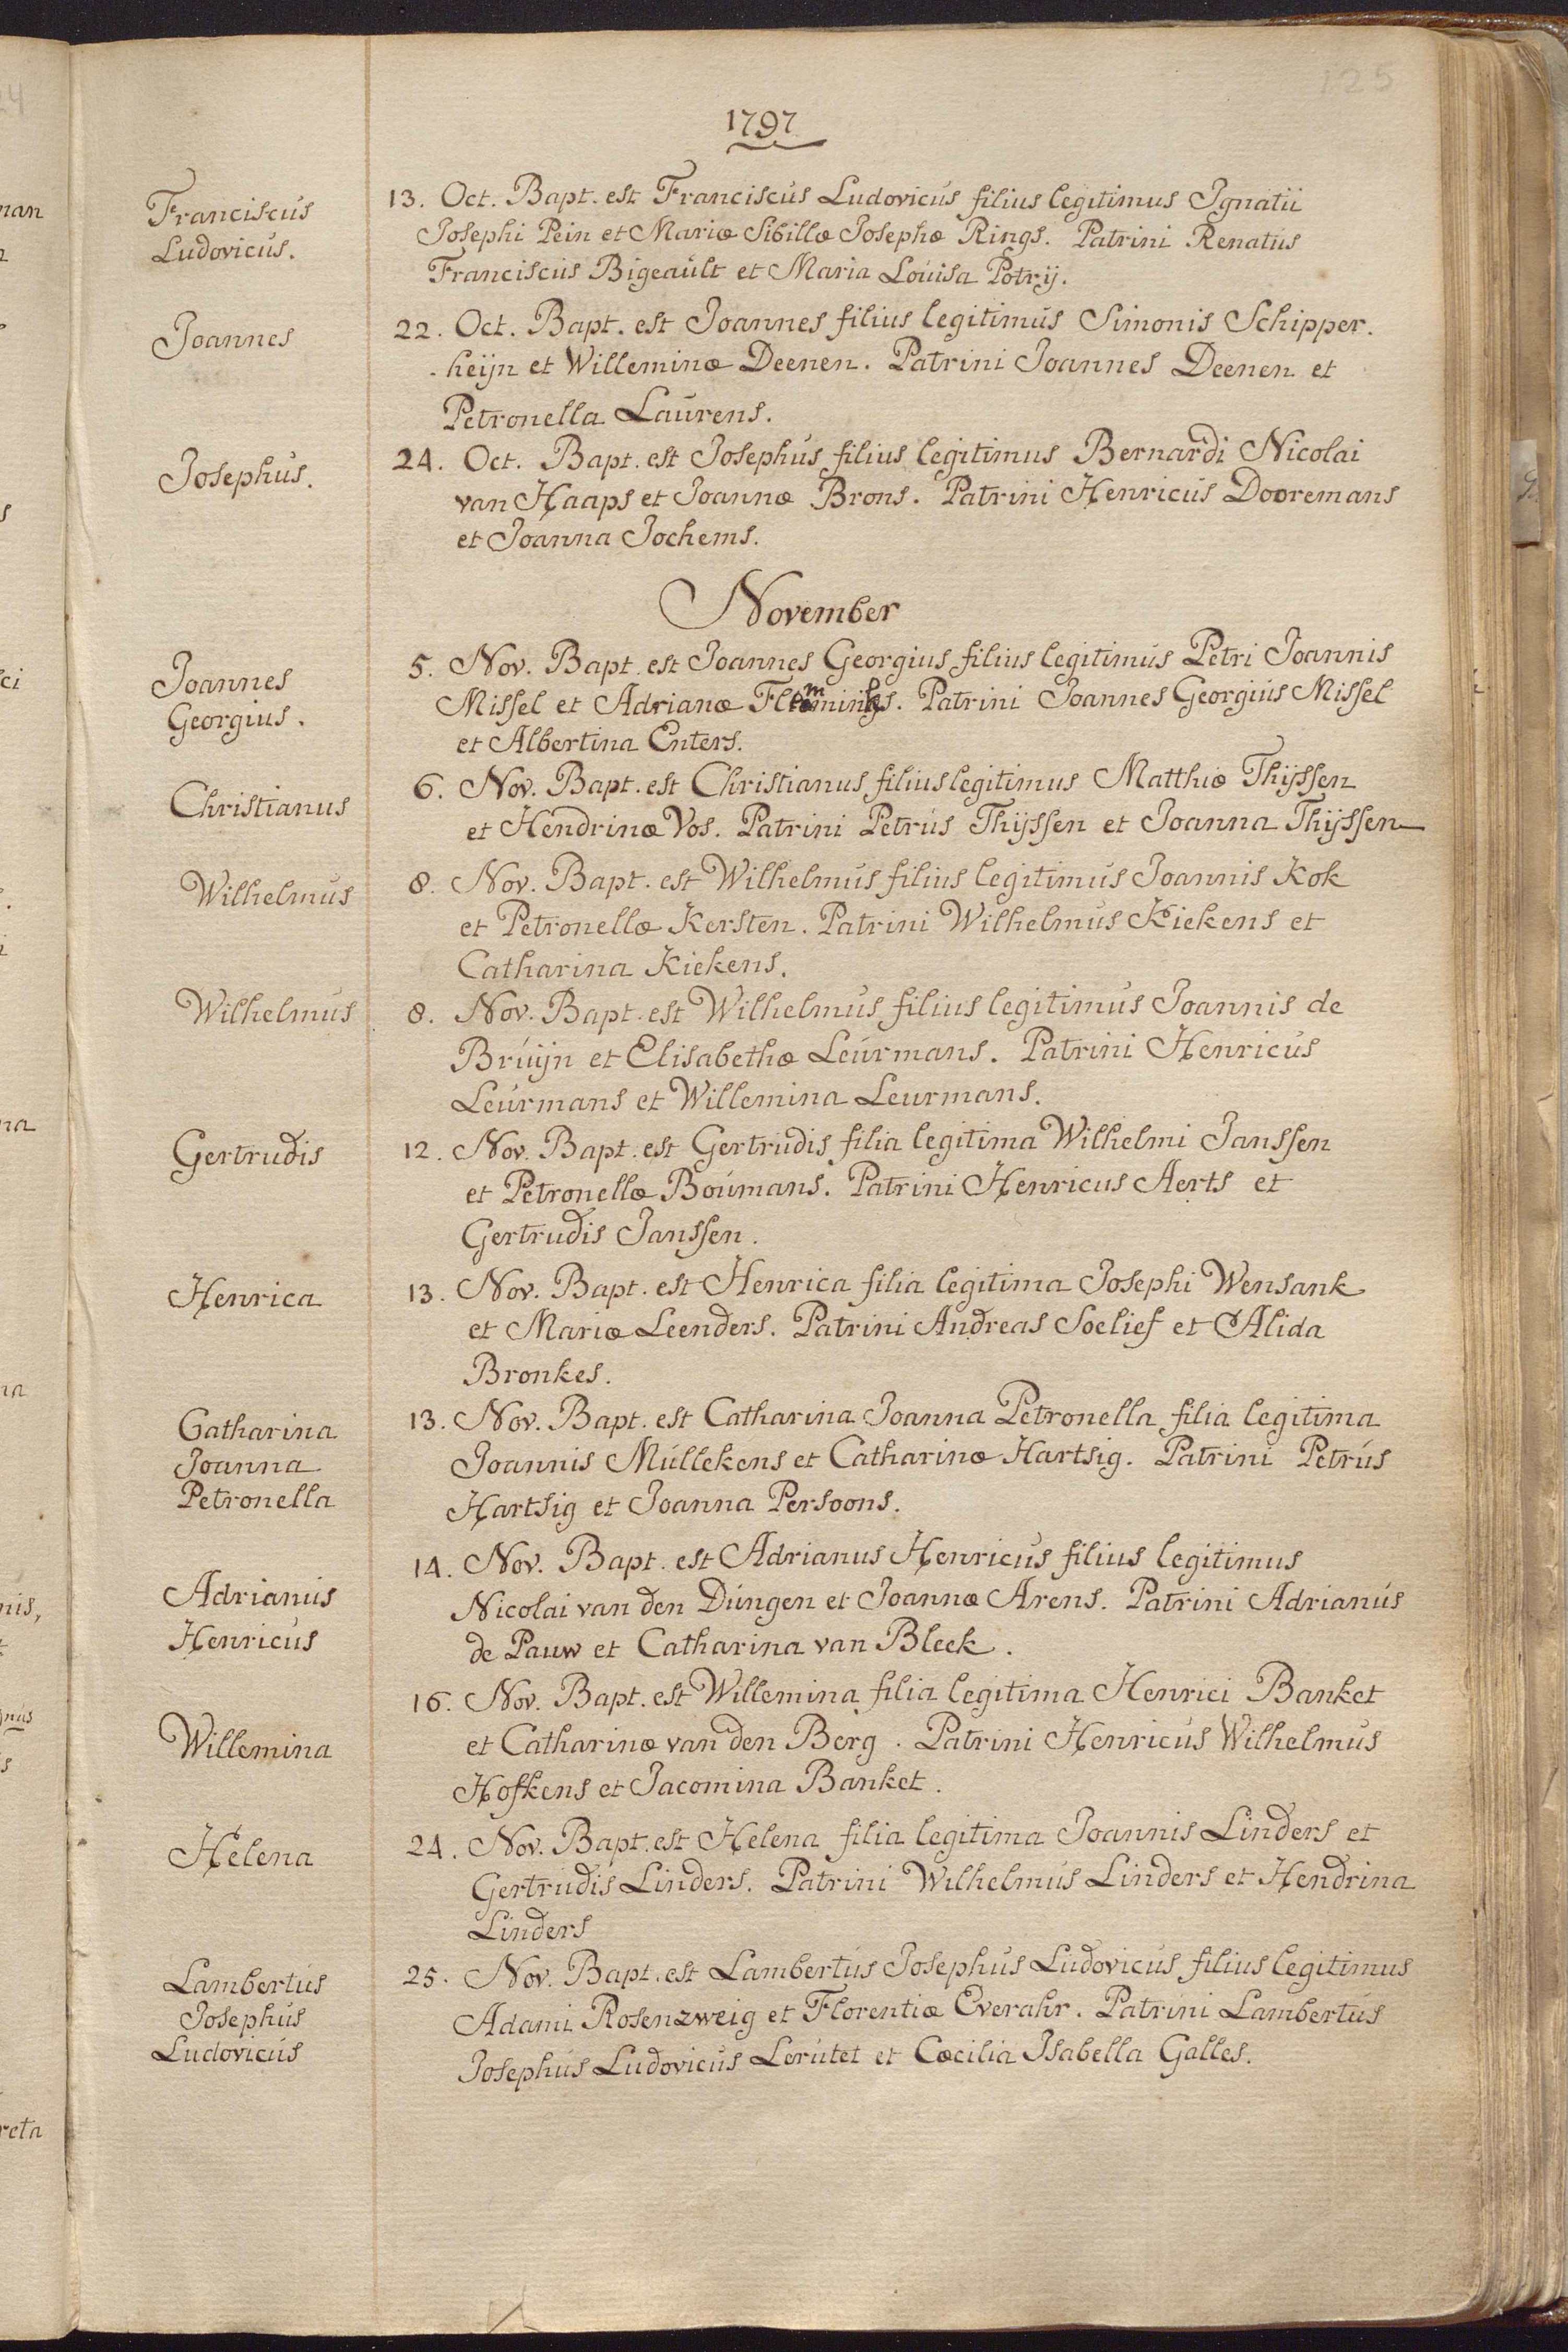 125
1797
Franciscus
Ludovicus.
13. Oct. Bapt. est Franciscus Ludovicus filius legitimus Ignatii
Josephi Pein et Mariæ Sibillæ Josephæ Rings. Patrini Renatus
Franciscus Bigeault et Maria Louisa Potrij.
Joannes
22. Oct. Bapt. est Joannes filius legitimus Simonis Schipper.
heijn et Willeminæ Deenen. Patrini Joannes Deenen et
Petronella Laurens.
Josephus.
24. Oct. Bapt. est Josephus filius legitimus Bernardi Nicolai
van Haaps et Joannæ Brons. Patrini Henricus Dooremans
et Joanna Jochems.
November
Joannes
Georgius.
5. Nov. Bapt. est Joannes Georgius filius legitimus Petri Joannis
Missel et Adrianæ Patrini Joannes Georgius Missel
et Albertina Enters.
Christianus
6. Nov. Bapt. est Christianus filius legitimus Matthiæ Thijssen
et Hendrinæ Vos. Patrini Petrus Thijssen et Joanna Thijssen
Wilhelmus
8. Nov. Bapt. est Wilhelmus filius legitimus Joannis Kok
et Petronellæ Kersten. Patrini Wilhelmus Kiekens et
Catharina Kiekens.
Wilhelmus
8. Nov. Bapt. est Wilhelmus filius legitimus Joannis de
Bruijn et Elisabethæ Leurmans. Patrini Henricus
Leurmans et Willemina Leurmans.
Gertrudis
12. Nov. Bapt. est Gertrudis filia legitima Wilhelmi Janssen
et Petronellæ Boumans. Patrini Henricus Aerts et
Gertrudis Janssen.
Henrica
13. Nov. Bapt. est Henrica filia legitima Josephi Wensank
et Mariæ Leenders. Patrini Andreas Soelief et Alida
Bronkes.
Catharina
Joanna
Petronella
13. Nov. Bapt. est Catharina Joanna Petronella filia legitima
Joannis Mullekens et Catharinæ Hartsig. Patrini Petrus
Hartsig et Joanna Persoons.
Adrianus
Henricus
14. Nov. Bapt. est Adrianus Henricus filius legitimus
Nicolai van den Dungen et Joannæ Arens. Patrini Adrianus
de Pauw et Catharina van Bleek.
Willemina
16. Nov. Bapt. est Willemina filia legitima Henrici Banket
et Catharinæ van den Berg. Patrini Henricus Wilhelmus
Hofkens et Jacomina Banket.
Helena
24. Nov. Bapt. est Helena filia legitima Joannis Linders et
Gertrudis Linders. Patrini Wilhelmus Linders et Hendrina
Linders
Lambertus
Josephus
Ludovicus
25. Nov. Bapt. est Lambertus Josephus Ludovicus filius legitimus
Adami Rosenzweig et Florentiæ Everahr. Patrini Lambertus
Josephus Ludovicus Lerutet et Cæcilia Isabella Galles.